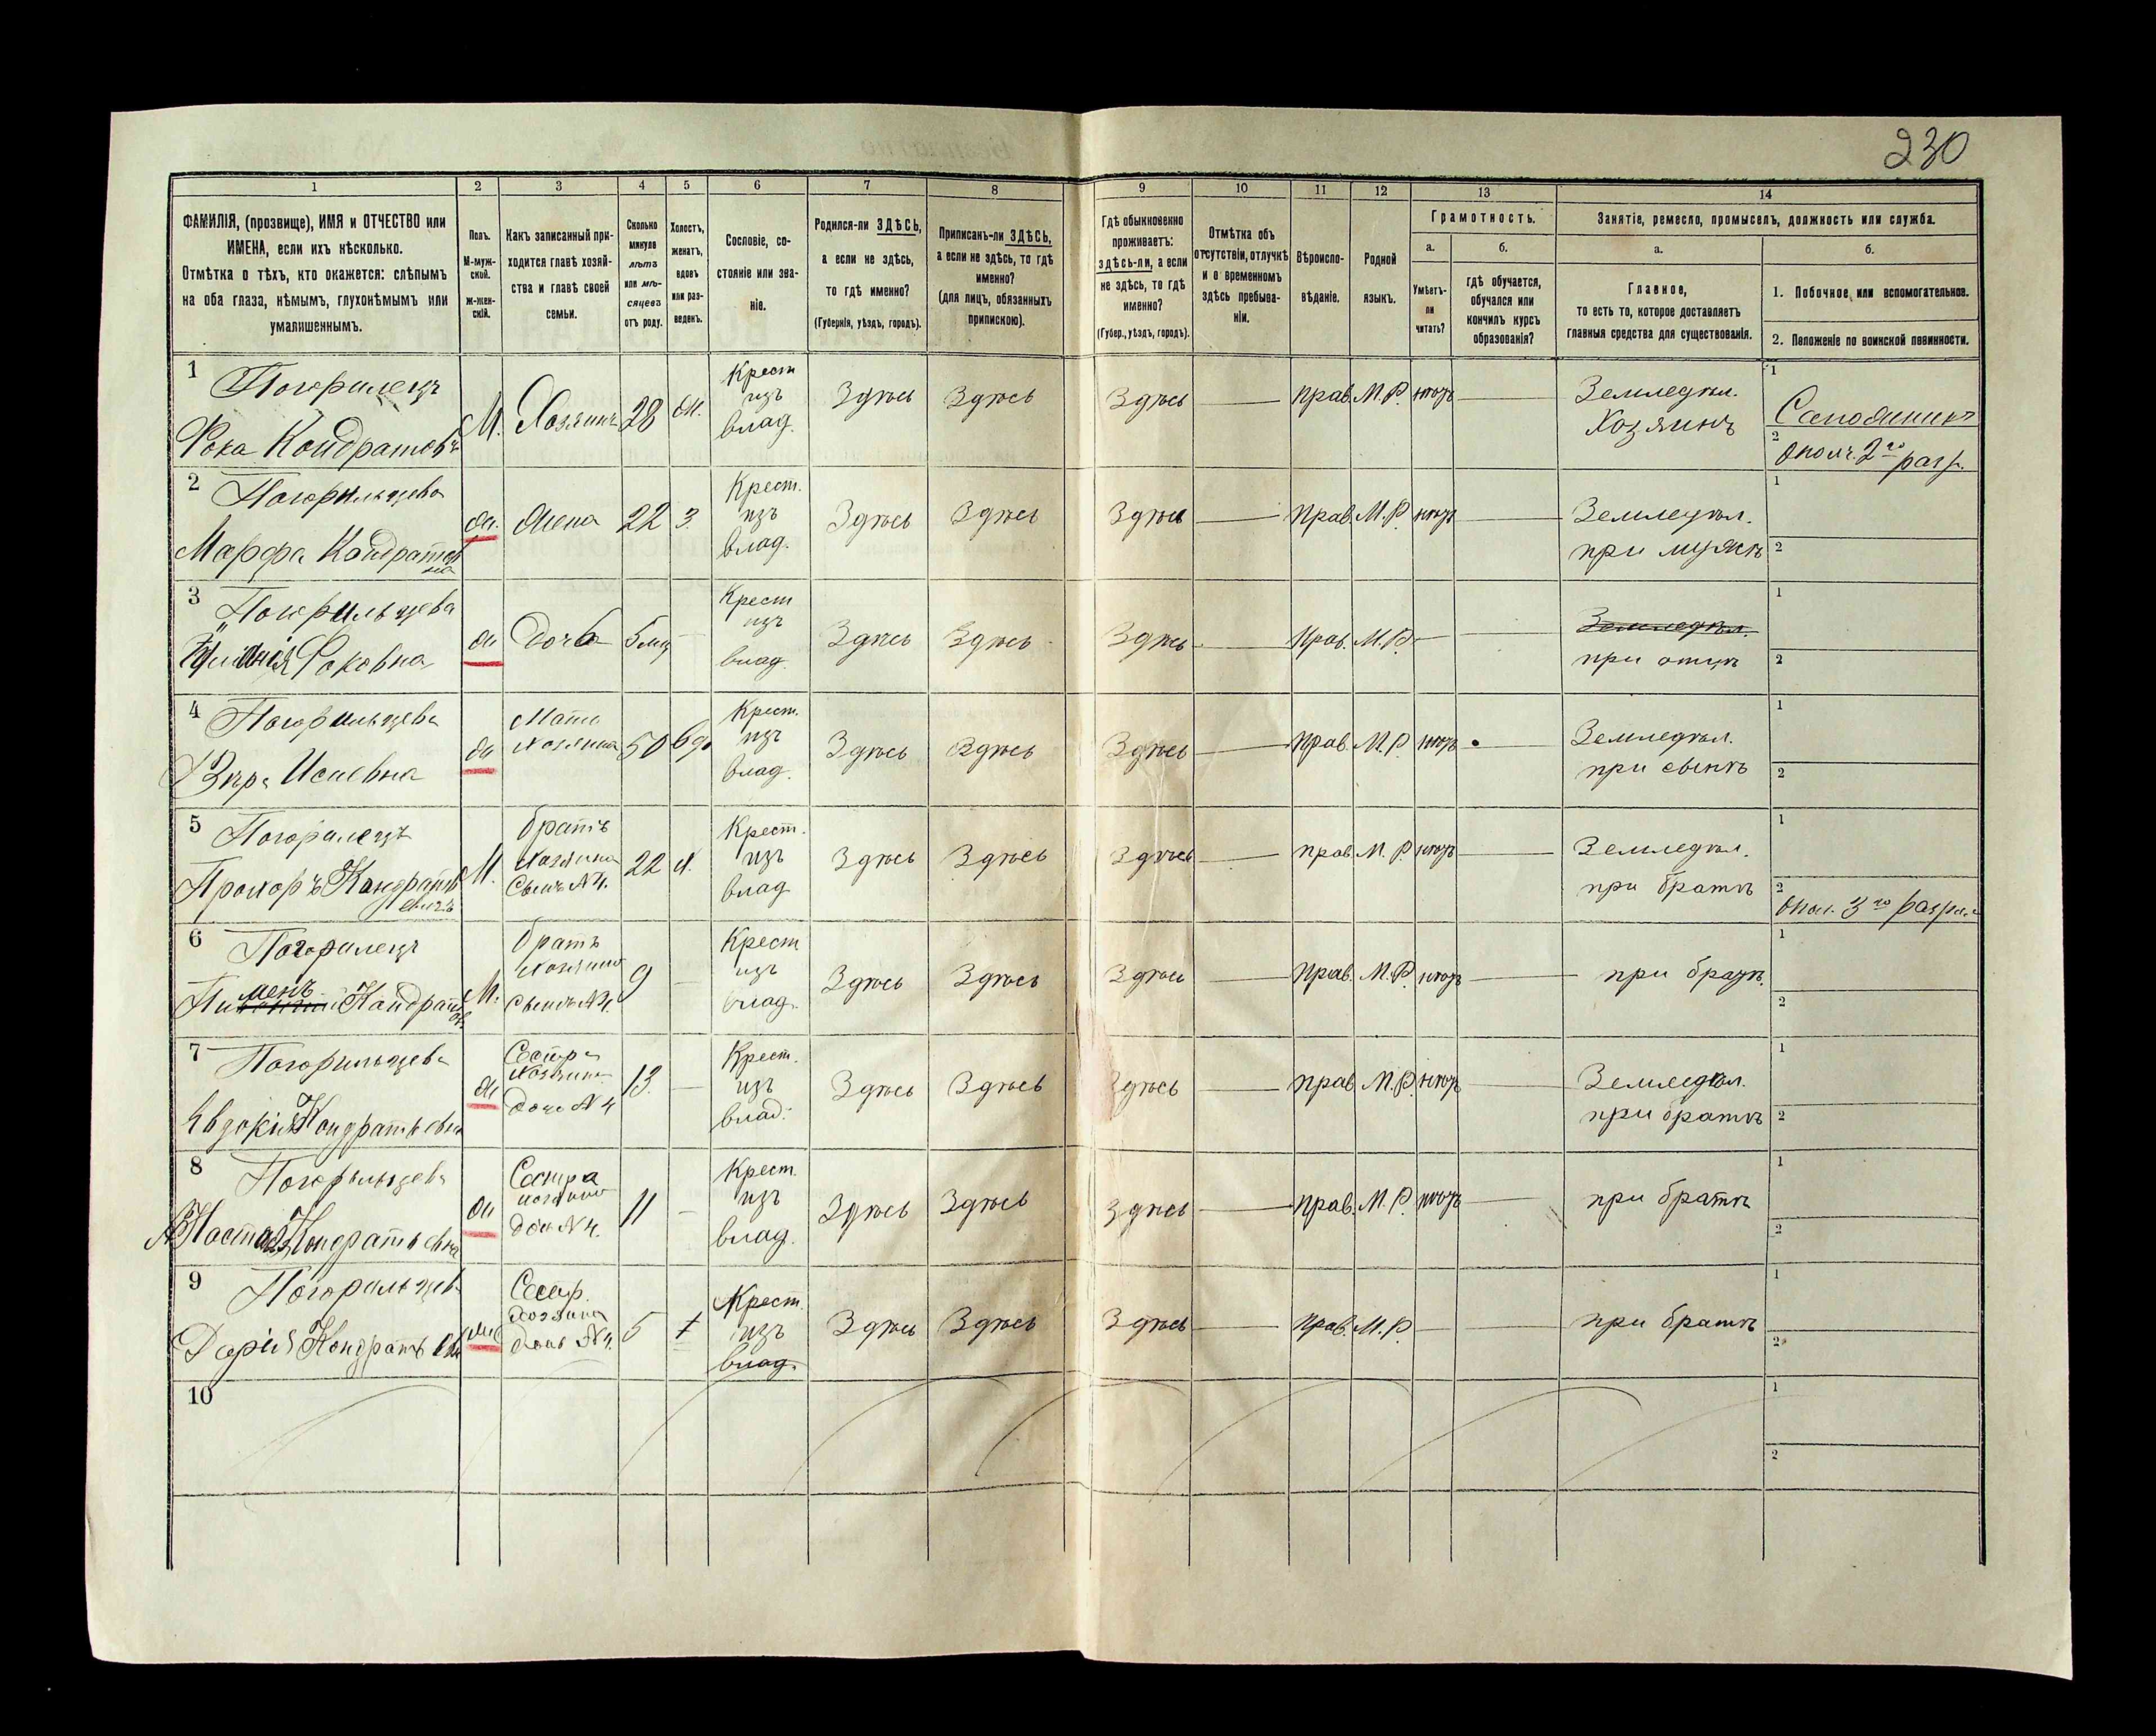 230
1 2 3 4 5 6 7 8 9 10 11 12 13 14
ФАМИЛІЯ, (прозвище), ИМЯ и ОТЧЕСТВО или
ИМЕНА, если ихъ нѣсколько.
Отмѣтка о тѣхъ, кто окажется: слѣпымъ
на оба глаза, нѣмымъ, глухонѣмымъ или
умалишеннымъ.
Полъ.
М-муж-
ской.
ж-жен-
скій.
Какъ записанный при-
ходится главѣ хозяй-
ства и главѣ своей
семьи.
Сколько
минуло
лѣтъ
или мѣ-
сяцевъ
отъ роду.
Холостъ,
женатъ,
вдовъ
или раз-
веденъ.
Сословіе, со-
стояніе или зва-
ніе.
Родился-ли ЗДѢСЬ,
а если не здѣсь,
то гдѣ именно?
(Губернія, уѣздъ, городъ).
Приписанъ-ли ЗДѢСЬ,
а если не здѣсь, то гдѣ
именно?
(для лицъ, обязанныхъ
припискою).
Гдѣ обыкновенно
проживаетъ:
здѣсь-ли, а если
не здѣсь, то гдѣ
именно?
(Губер., уѣздъ, городъ).
Отмѣтка объ
отсутствіи, отлучкѣ
и о временномъ
здѣсь пребыва-
ніи.
Вѣроиспо-
вѣданіе.
Родной
языкъ.
Грамотность.
а.
Умѣетъ-
ли
читать?
б.
гдѣ обучается,
обучался или
кончилъ курсъ
образованія?
Занятіе, ремесло, промыселъ, должность или служба.
а.
Главное,
то есть то, которое доставляетъ
главныя средства для существованія.
б.
1. Побочное или вспомогательное.
2. Положеніе по воинской повинности.
1 Погорилецъ
Фока Кондратовъ
М. Хозяинъ 28 ж.
Крест
изъ
влад.
Здѣсь Здѣсь Здѣсь — Прав. М.Р. нѣтъ —
Земледѣл.
Хозяинъ
1
2
Окол. 2го разр.
2 Погорильцева
Марфа Кондратов
на
ж. Жена 22 З.
Крест.
изъ
влад.
Здѣсь Здѣсь Здѣсь — Прав. М.Р. нѣтъ —
Земледѣл.
при мужѣ
1
2
3 Погорильцева
Фоковна
ж Дочь 5 мц —
Крест
изъ
влад.
Здѣсь Здѣсь Здѣсь — Прав. М.Р. — —
Земледѣл.
при отцѣ
1
2
4 Погорильцева
Вѣра Исаевна
ж
Мать
хозяина
50 вдо
Крест.
изъ
влад.
Здѣсь Здѣсь Здѣсь — Прав. М.Р. нѣтъ —
Земледѣл.
при сынѣ
1
2
5 Погорилецъ
Прохоръ Кондрать
евичъ
М.
братъ
хозяина
Сынъ №4.
22 х.
Крест.
изъ
влад
Здѣсь Здѣсь Здѣсь — прав М.Р. нѣтъ —
Земледѣл.
при братѣ
1
2
Окол. 3го разряд
6 Погорилецъ
Пименъ Кондрат
ов.
М.
братъ
хозяина
Сынъ №4.
9 —
Крест
изъ
влад.
Здѣсь Здѣсь Здѣсь — Прав. М.Р. нѣтъ —
при братѣ.
1
2
7 Погорильцева
Евдокія Кондратьевна
ж
Сестра
хозяина
дочь №4
13. —
Крест.
изъ
влад.
Здѣсь Здѣсь Здѣсь — Прав М.Р. нѣтъ —
Земледѣл.
при братѣ
1
2
8 Погорильцева
Настасія Кондратьевна
ж
Сестра
хозяина
дочь №4.
11 —
Крест.
изъ
влад.
Здѣсь Здѣсь Здѣсь — Прав. М.Р. нѣтъ —
при братѣ
1
2
9 Погорильцев
Дарія Кондратьевн
ж
Сестр.
Хозяина
дочь №4.
5
Крест.
изъ
влад.
Здѣсь Здѣсь Здѣсь — Прав. М.Р. — —
при братѣ
1
2
10
1
2